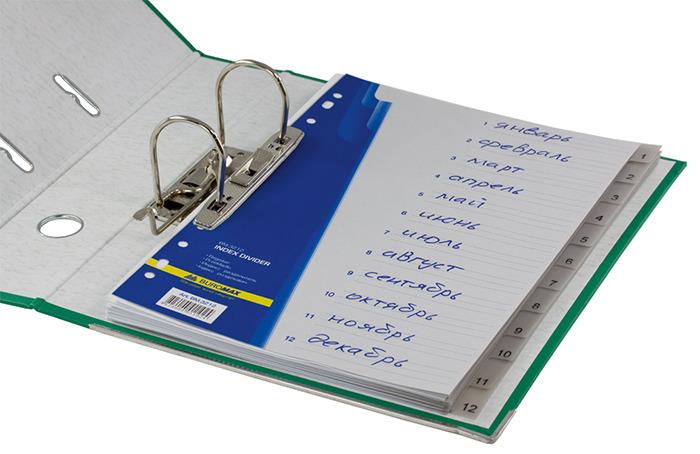 1 январь
2 февраль
3 март
4 апрель
5 май
6 июнь
7 июль
8 август
9 сентябрь
10 октябрь
11 ноябрь
12 декабрь
BM.3212
INDEX DIVIDER
BUROMAX
Art. BM.3212
1
2
3
4
5
6
7
8
9
10
11
12